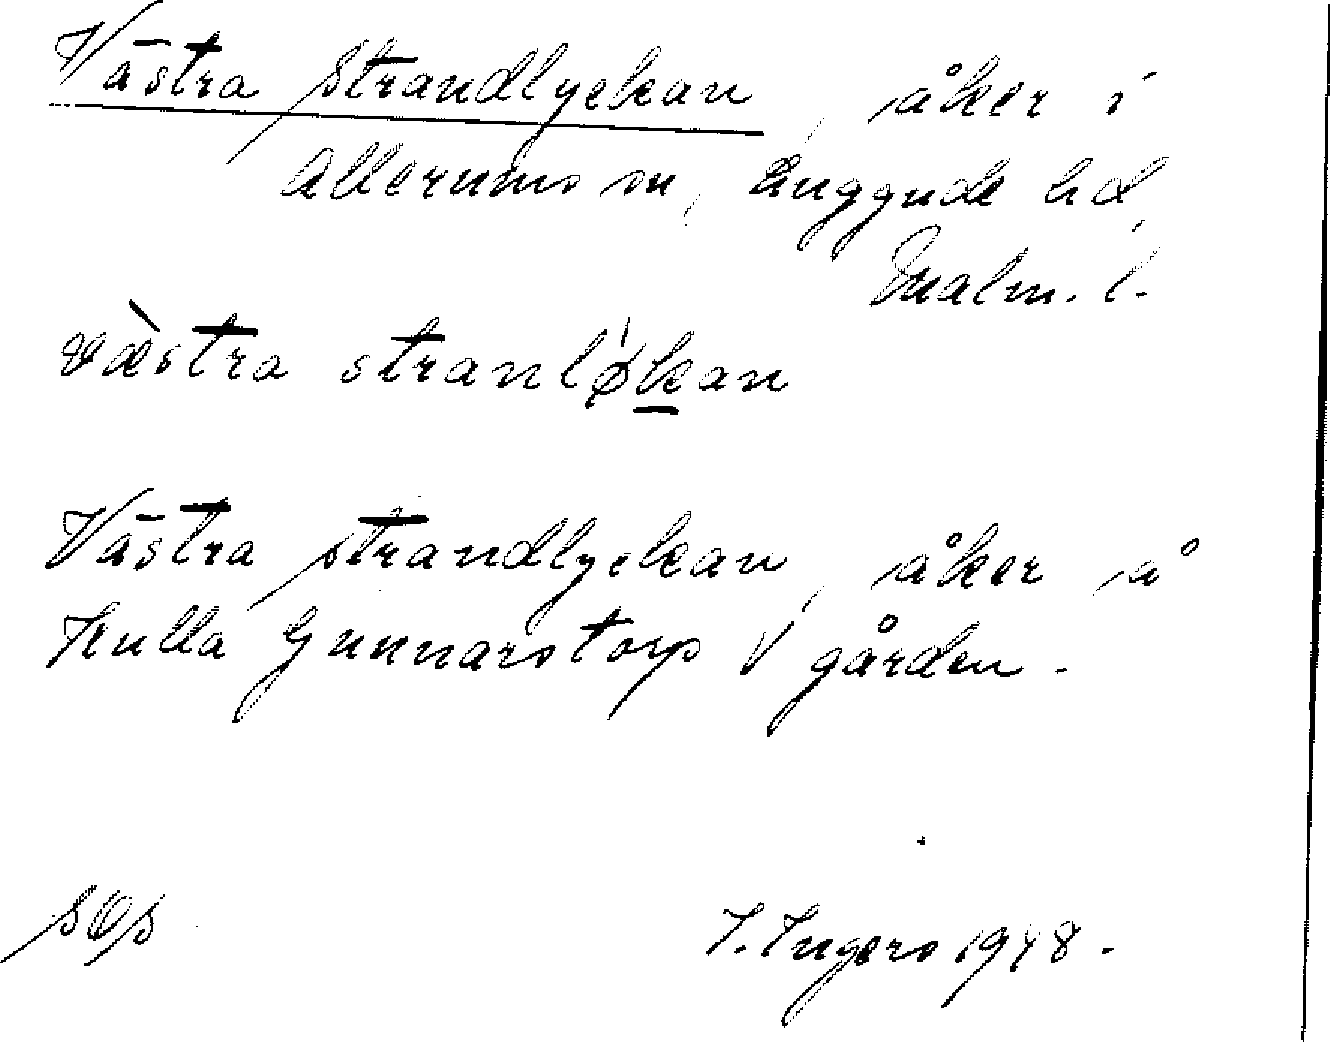 Västra Strandlyckan, åker i
Allerums sn, Luggude hd,
Malm. l.
væ̀stra stranlø̍k̲an
Västra Strandlyckan, åker å
Kulla Gunnarstorp V gården.
I. Ingers 1948.